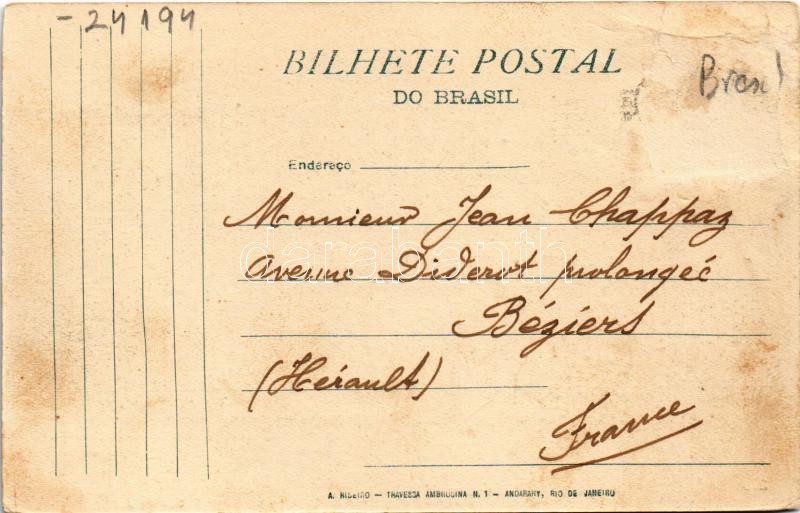 - 24 194
BILHETE POSTAL
DO BRASIL
Bresil
Endereço
Monsieur Jean Chappaz
Avenue Diderot prolongée
Béziers
(Hérault)
France
darabanth
A. RIBEIRO — TRAVESSA AMBROSINA N. 1 — ANDARAHY, RIO DE JANEIRO